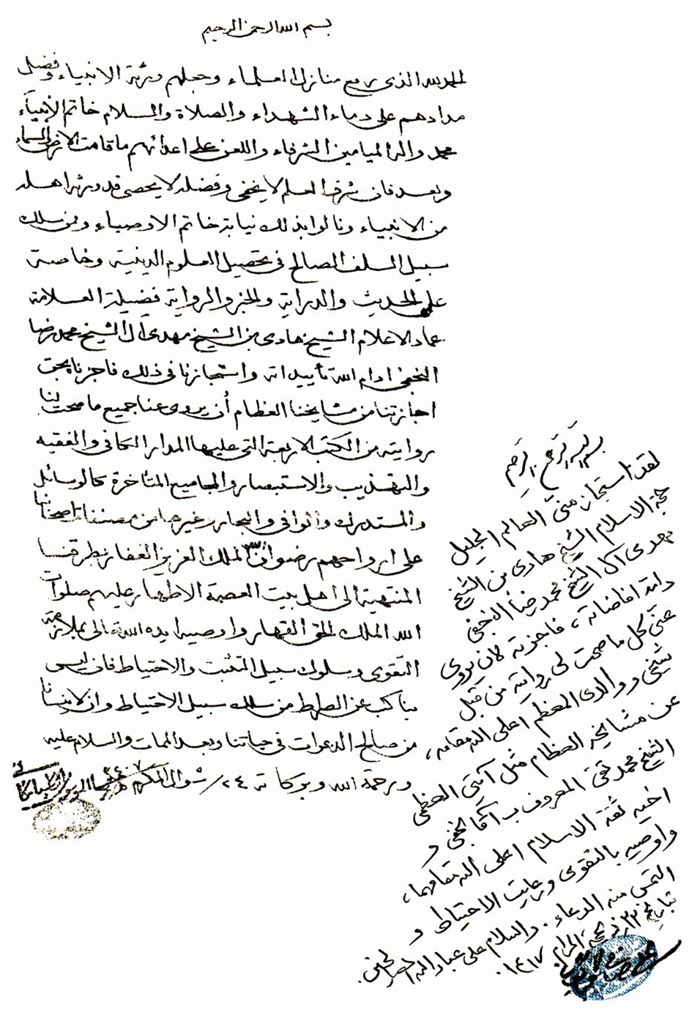 بسم الله الرحمن الرحيم
الحمد لله الذي رفع منازل العلماء وجعلهم ورثة الانبياء وفضل
مدادهم على دماء الشهداء والصلاة والسلام خاتم الأنبياء
محمد واله الميامين الشرفاء واللعن على اعدائهم ما قامت الارض والسماء
وبعد فان شرف العلم لا يخفى وفضله لا يحصى قد ورثه اهله
من الانبياء ونالوا بذلك نيابة خاتم الاوصياء وممن سلك
سبيل السلف الصالح في تحصيل العلوم الدينية وخاصة
علمي الحديث والدراية والخبر والرواية فضيلة العلامة
عماد الاعلام الشيخ هادي بن الشيخ مهدي ال الشيخ محمد رضا
النجفي ادام الله تأييداته واستجازنا في ذلك فاجزنا بحق
اجازتنا من مشايخنا العظام أن يروي عنا جميع ما صحت لنا
روايته من الكتب الاربعة التي عليها المدار الكافي والفقيه
والتهذيب والاستبصار والمجاميع المتأخرة كالوسائل
والمستدرك والوافي والبحار وغيرها من مصنفات اصحابنا
على ارواحهم رضوان الملك العزيز الغفار بطرقنا
المنتهية الى اهل بيت العصمة الاطهار عليهم صلوات
الله الملك الحق القهار واوصيه ايده الله تعالى بملازمة
التقوى وسلوك سبيل التثبت والاحتياط فان ليس
بناكب عن الصراط من سلك سبيل الاحتياط وان لا ينسانا
من صالح الدعوات في حياتنا وبعد الممات والسلام عليه
ورحمة الله وبركاته ٢٤/ شوال المكرم
بسم الله الرحمن الرحيم
لقد استجاز مني العالم الجليل
حجة الاسلام الشيخ هادي بن الشيخ
مهدي آل الشيخ محمد رضا النجفي
دامة افاضاته، فاجزته لان يروي
عني كل ما صحت لي روايته من قبل
شيخي ووالدي المعظم اعلى الله مقامه،
عن مشايخه العظام مثل آيتي العظمى
الشيخ محمد تقي المعروف ب آقا نجفي و
اخيه ثقة الاسلام اعلى الله مقامهما،
واوصيه بالتقوى ورعايت الاحتياط و
التمس منه الدعاء. والسلام على عباد الله الصالحين.
بتاريخ ذي حجة الحرام ١٤١٧.